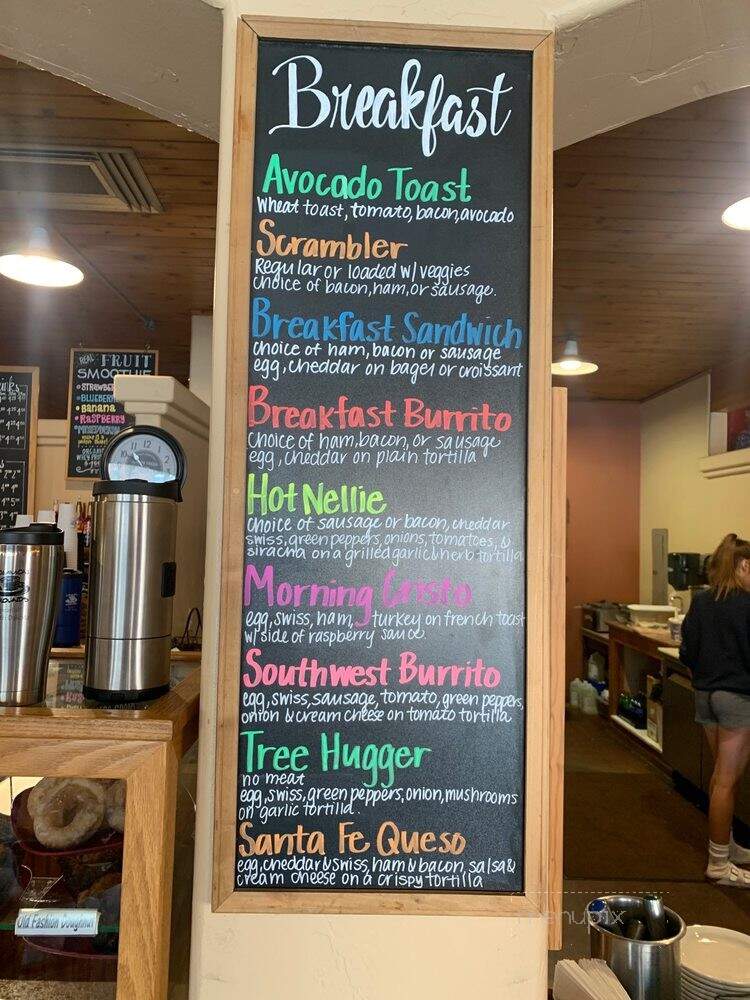 Breakfast
Avocado Toast
Wheat toast, tomato, bacon, avocado
Scrambler
Regular or loaded w/ veggies
choice of bacon, ham, or sausage.
Breakfast Sandwich
choice of ham, bacon or sausage
egg, cheddar on bagel or croissant
Breakfast Burrito
choice of ham, bacon, or sausage
egg, cheddar on plain tortilla
Hot Nellie
choice of sausage or bacon, cheddar
swiss, green peppers, onions, tomatoes, &
siracha on a grilled garlic & herb tortilla
Morning Cristo
egg, swiss, ham, turkey on french toast
w/ side of raspberry sauce.
Southwest Burrito
egg, swiss, sausage, tomato, green peppers,
onion & cream cheese on tomato tortilla
Tree Hugger
no meat
egg, swiss, green peppers, onion, mushrooms
on garlic tortilla.
Santa Fe Queso
egg, cheddar & swiss, ham & bacon, salsa &
cream cheese on a crispy tortilla
REAL FRUIT
SMOOTHIE
BANANA
RASPBERRY
Old Fashion Doughnut
menupix